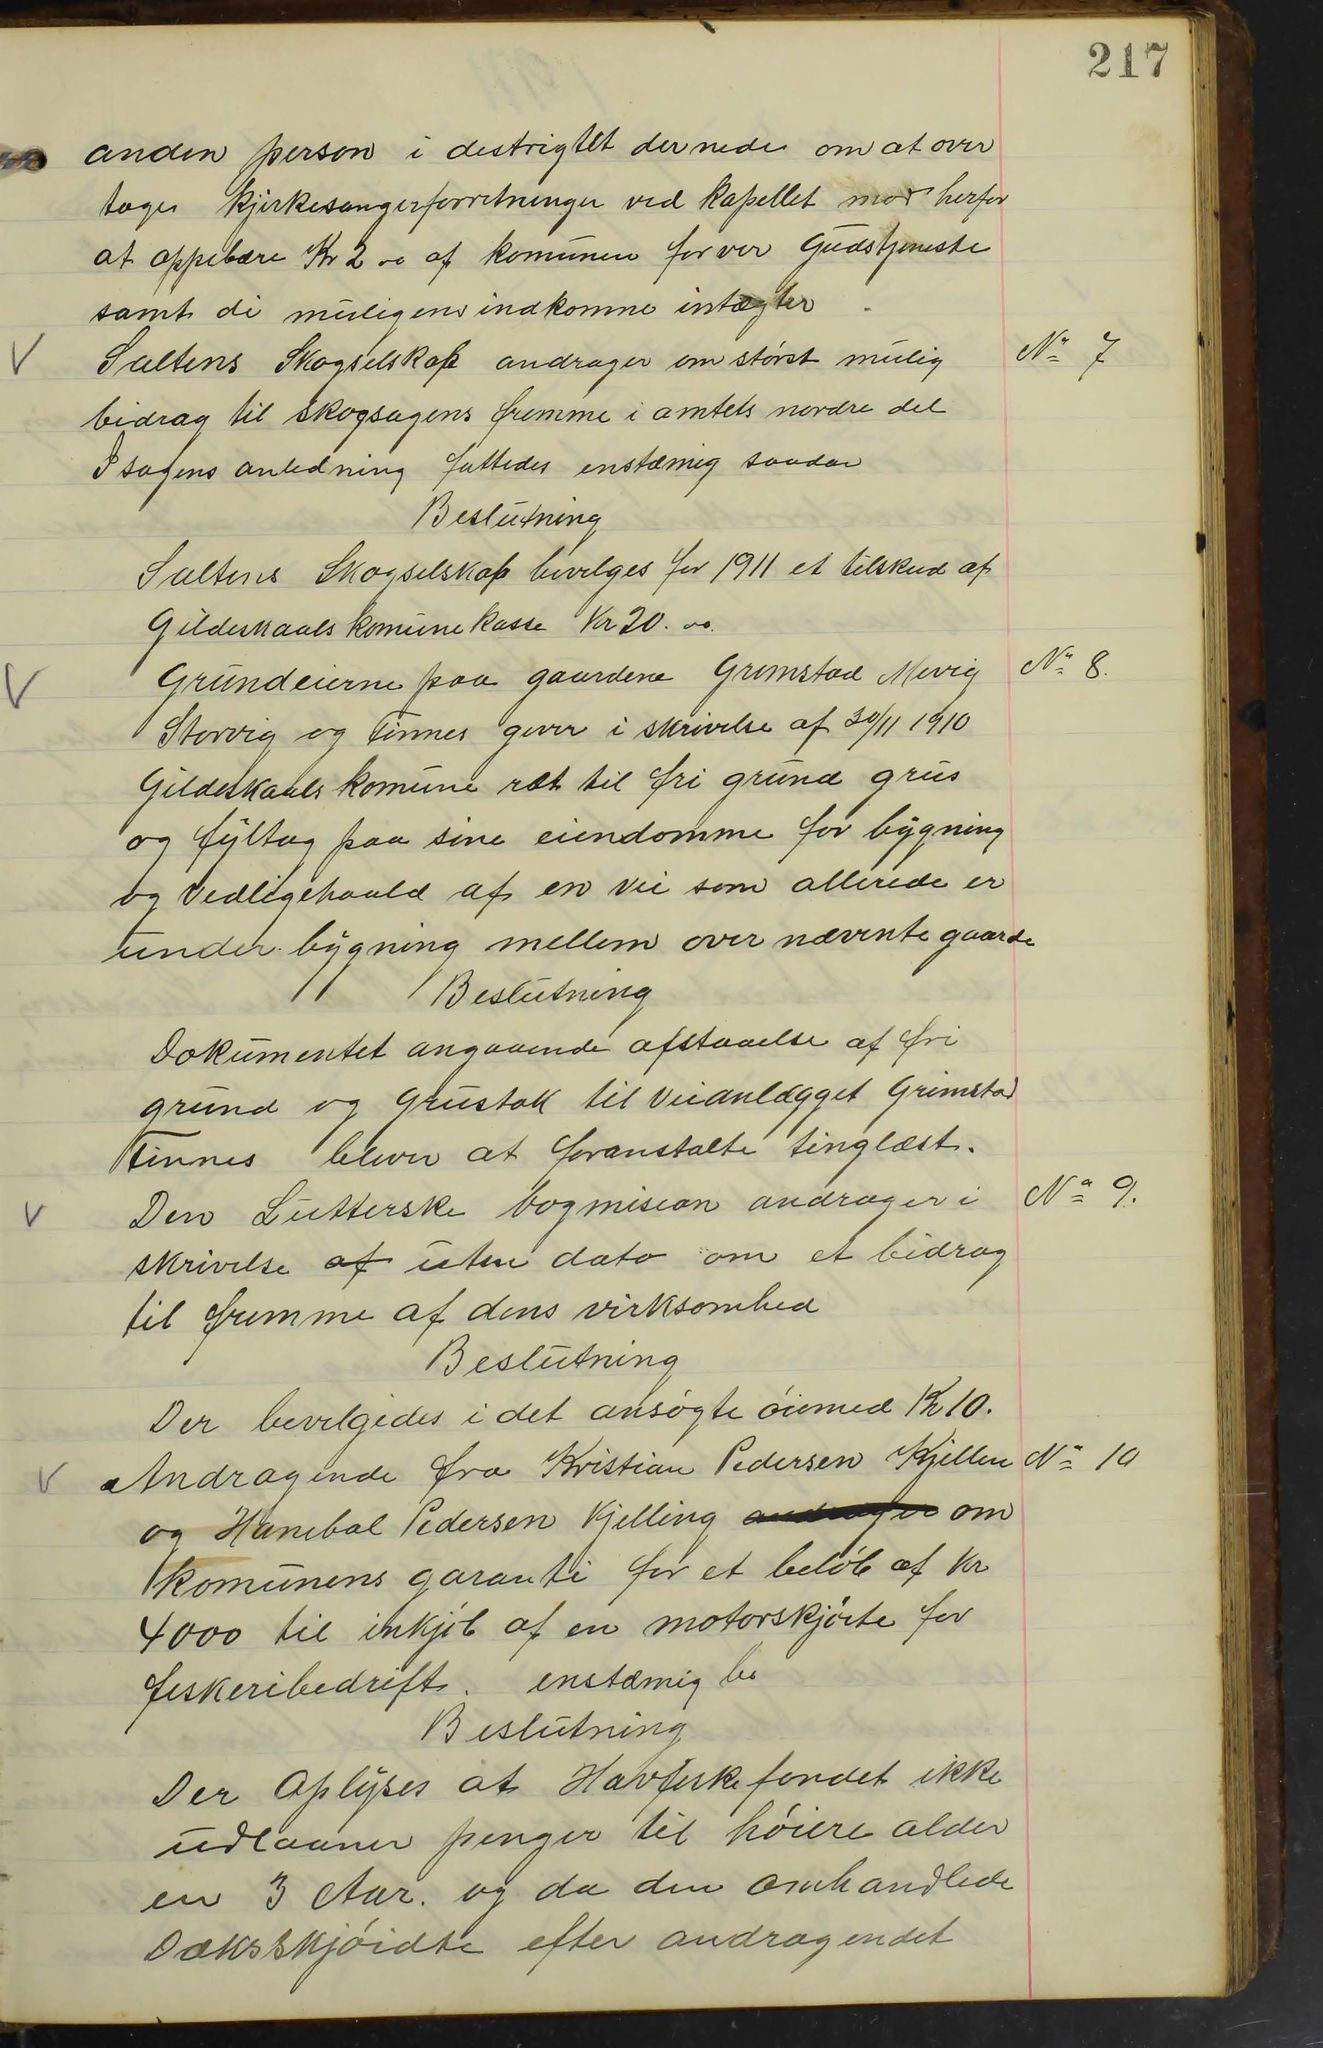 217
anden person i destrigtet dernede om at over
tages kjirkesangerforretninger ved kapellet mod herfor
at oppebære Kr 2 00 af komunen for ver Gudstjeneste
samt de muligens indkomne intægter
Saltens Skogselskap andrager om størst mulig No 7
bidrag til skogsagens fremme i amtets nordre del
I sagens anledning fattedes enstæmig saadan
Beslutning
Saltens Skogselskap bevilges for 1911 et tilskud af
Gildeskaals komune kasse Kr 20. 00.
Grundeierne paa gaardene Grimstad Mevig No 8.
Storvig og Finnes giver i skrivelse af 30/11 1910
Gildeskaals komune ret til fri grund grus
og fyltag paa sine eiendomme for bygning
og Vedligehaald af en vei som allerede er
under bygning mellem over nævnte gaarde
Beslutning
Dokumentet angaaende afstaaelse af fri
grund og Grustak til Veianlægget Grimstad
Finnes bliver at foranstalte tinglæst.
Den Lutterske bogmision andrager i No 9.
skrivelse af uten dato om et bidrag
til fremme af dens virksomhed
Beslutning
Der bevilgedes i det ansøgte øiemed Kr 10.
Andragende fra Kristian Pedersen Kjelling No 10
og Hanibal Pedersen Kjelling andrager om
komunens garanti for et beløb af Kr
4000 til inkjøb af en motorskjøite for
feskeribedrift. enstæmig be
Beslutning
Der Oplyses at Havfeskefondet ikke
udlaaner penger til høiere alder
en 3 Aar. og da den omhandlede
Dæksskjøidte efter andragendet